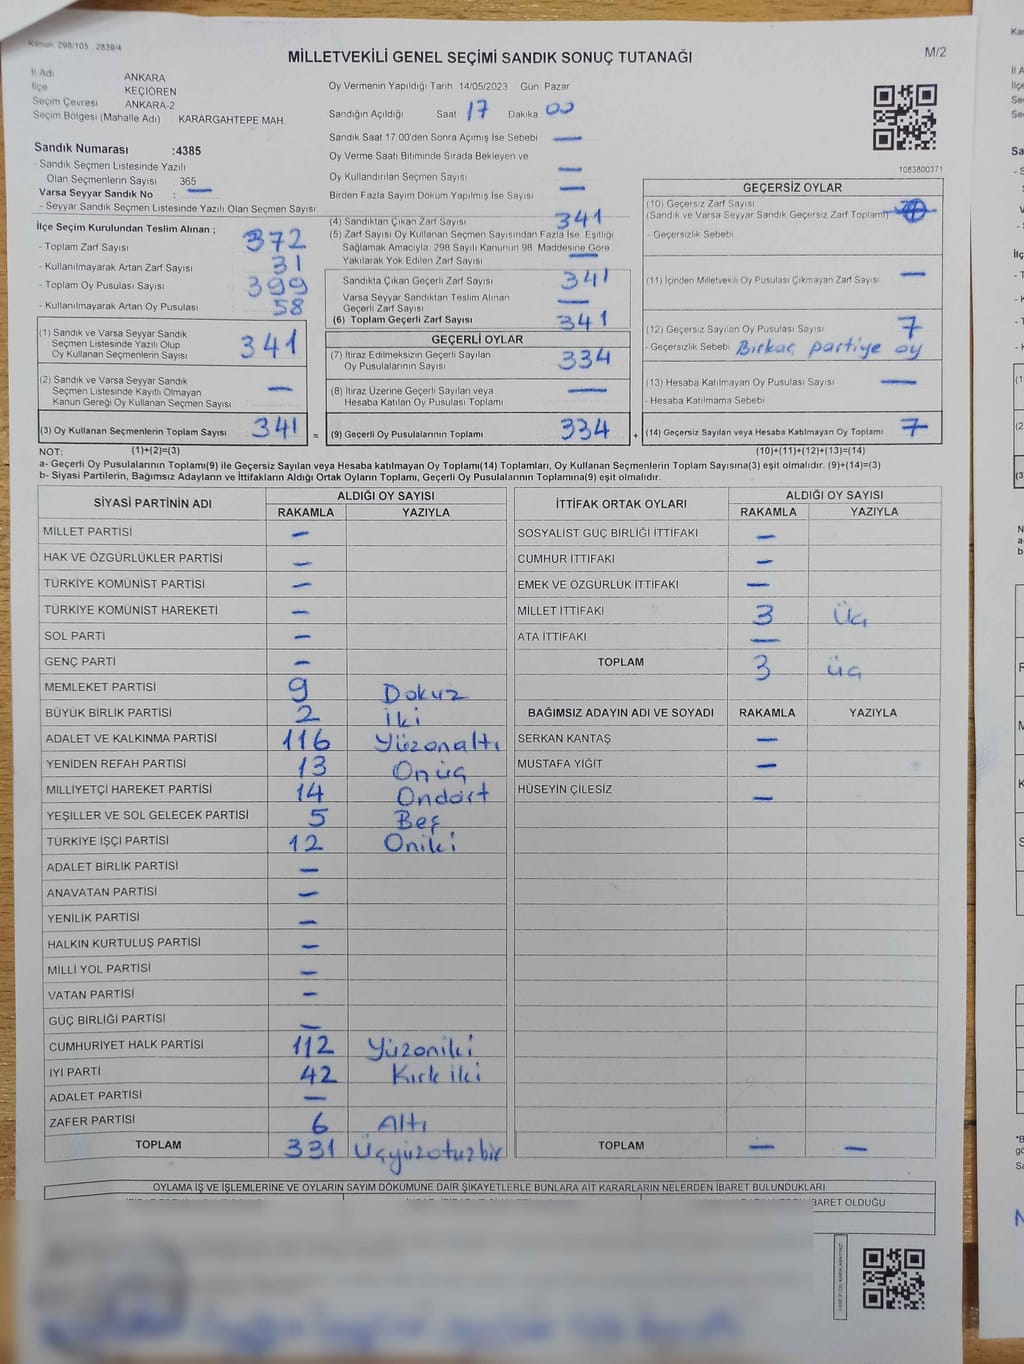 Kanun: 298/105 . 2839/4
M/2
MİLLETVEKİLİ GENEL SEÇİMİ SANDIK SONUÇ TUTANAĞI
İl Adı ANKARA
İlçe KEÇİÖREN
Seçim Çevresi ANKARA-2
Seçim Bölgesi (Mahalle Adı) KARARGAHTEPE MAH.
Sandık Numarası :4385
- Sandık Seçmen Listesinde Yazılı
Olan Seçmenlerin Sayısı 365
Varsa Seyyar Sandık No : —
- Seyyar Sandık Seçmen Listesinde Yazılı Olan Seçmen Sayısı:
İlçe Seçim Kurulundan Teslim Alınan ;
- Toplam Zarf Sayısı 372
- Kullanılmayarak Artan Zarf Sayısı 31
- Toplam Oy Pusulası Sayısı 399
- Kullanılmayarak Artan Oy Pusulası 58
(1) Sandık ve Varsa Seyyar Sandık
Seçmen Listesinde Yazılı Olup
Oy Kullanan Seçmenlerin Sayısı 341
(2) Sandık ve Varsa Seyyar Sandık
Seçmen Listesinde Kayıtlı Olmayan —
Kanun Gereği Oy Kullanan Seçmen Sayısı
(3) Oy Kullanan Seçmenlerin Toplam Sayısı 341 =
Oy Vermenin Yapıldığı Tarih 14/05/2023 Gün Pazar
Sandığın Açıldığı Saat 17 Dakika 00
Sandık Saat 17.00'den Sonra Açımış İse Sebebi —
Oy Verme Saati Bitiminde Sırada Bekleyen ve
Oy Kullandırılan Seçmen Sayısı —
Birden Fazla Sayım Döküm Yapılmış İse Sayısı —
(4) Sandıktan Çıkan Zarf Sayısı 341
(5) Zarf Sayısı Oy Kullanan Seçmen Sayısından Fazla İse, Eşitliği
Sağlamak Amacıyla, 298 Sayılı Kanunun 98. Maddesine Göre
Yakılarak Yok Edilen Zarf Sayısı —
Sandıkta Çıkan Geçerli Zarf Sayısı 341
Varsa Seyyar Sandıktan Teslim Alınan
Geçerli Zarf Sayısı —
(6) Toplam Geçerli Zarf Sayısı 341
GEÇERLİ OYLAR
(7) İtiraz Edilmeksizin Geçerli Sayılan
Oy Pusulalarının Sayısı 334
(8) İtiraz Üzerine Geçerli Sayılan veya
Hesaba Katılan Oy Pusulası Toplamı —
(9) Geçerli Oy Pusulalarının Toplamı 334 +
1083800371
GEÇERSİZ OYLAR
(10) Geçersiz Zarf Sayısı
(Sandık ve Varsa Seyyar Sandık Geçersiz Zarf Toplamı)
- Geçersizlik Sebebi
(11) İçinden Milletvekili Oy Pusulası Çıkmayan Zarf Sayısı —
(12) Geçersiz Sayılan Oy Pusulası Sayısı 7
- Geçersizlik Sebebi Birkaç partiye oy
(13) Hesaba Katılmayan Oy Pusulası Sayısı —
- Hesaba Katılmama Sebebi
(14) Geçersiz Sayılan veya Hesaba Katılmayan Oy Toplamı 7
NOT: (1)+(2)=(3) (10)+(11)+(12)+(13)=(14)
a- Geçerli Oy Pusulalarının Toplamı(9) ile Geçersiz Sayılan veya Hesaba katılmayan Oy Toplamı(14) Toplamları, Oy Kullanan Seçmenlerin Toplam Sayısına(3) eşit olmalıdır. (9)+(14)=(3)
b- Siyasi Partilerin, Bağımsız Adayların ve İttifakların Aldığı Ortak Oyların Toplamı, Geçerli Oy Pusulalarının Toplamına(9) eşit olmalıdır.
SİYASİ PARTİNİN ADI ALDIĞI OY SAYISI
RAKAMLA YAZIYLA
MİLLET PARTİSİ —
HAK VE ÖZGÜRLÜKLER PARTİSİ —
TÜRKİYE KOMÜNİST PARTİSİ —
TÜRKİYE KOMÜNİST HAREKETİ —
SOL PARTİ —
GENÇ PARTİ —
MEMLEKET PARTİSİ 9 Dokuz
BÜYÜK BİRLİK PARTİSİ 2 İki
ADALET VE KALKINMA PARTİSİ 116 Yüzonaltı
YENİDEN REFAH PARTİSİ 13 Onüç
MİLLİYETÇİ HAREKET PARTİSİ 14 Ondört
YEŞİLLER VE SOL GELECEK PARTİSİ 5 Beş
TÜRKİYE İŞÇİ PARTİSİ 12 Oniki
ADALET BİRLİK PARTİSİ —
ANAVATAN PARTİSİ —
YENİLİK PARTİSİ —
HALKIN KURTULUŞ PARTİSİ —
MİLLİ YOL PARTİSİ —
VATAN PARTİSİ —
GÜÇ BİRLİĞİ PARTİSİ —
CUMHURİYET HALK PARTİSİ 112 Yüzoniki
İYİ PARTİ 42 Kırk iki
ADALET PARTİSİ —
ZAFER PARTİSİ 6 Altı
TOPLAM 331 Üçyüzotuzbir
İTTİFAK ORTAK OYLARI ALDIĞI OY SAYISI
RAKAMLA YAZIYLA
SOSYALİST GÜÇ BİRLİĞİ İTTİFAKI —
CUMHUR İTTİFAKI —
EMEK VE ÖZGÜRLÜK İTTİFAKI —
MİLLET İTTİFAKI 3 Üç
ATA İTTİFAKI —
TOPLAM 3 üç
BAĞIMSIZ ADAYIN ADI VE SOYADI RAKAMLA YAZIYLA
SERKAN KANTAŞ —
MUSTAFA YİĞİT —
HÜSEYİN ÇİLESİZ —
TOPLAM — —
OYLAMA İŞ VE İŞLEMLERİNE VE OYLARIN SAYIM DÖKÜMÜNE DAİR ŞİKAYETLERLE BUNLARA AİT KARARLARIN NELERDEN İBARET BULUNDUKLARI
İBARET OLDUĞU